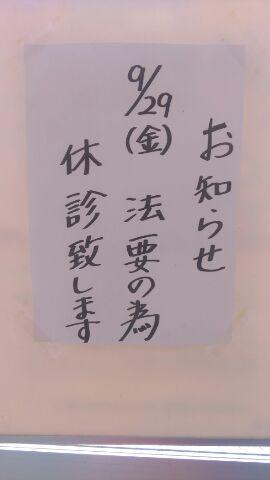 お知らせ
9/29(金) 法要の為
休診致します